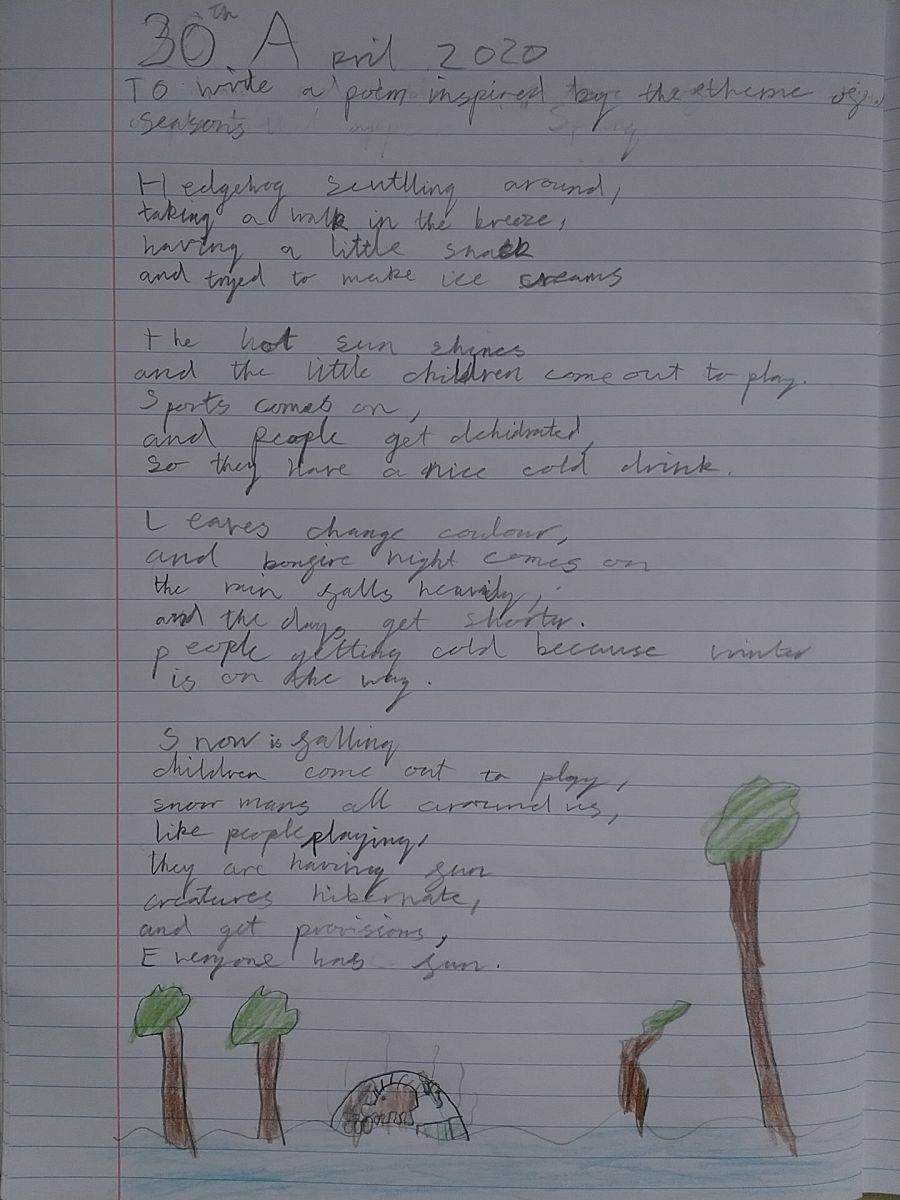 30th April 2020
To write a poem inspired by the theme of
seasons
Hedgehog scuttling around,
taking a walk in the breeze,
having a little snack
and tryed to make ice creams
the hot sun shines
and the little children come out to play.
Sports comes on,
and people get dehidrated,
so they have a nice cold drink.
Leaves change coulour,
and bonfire night comes on
the rain falls heavily,
and the days get shorter.
people getting cold because winter
is on the way.
Snow is falling
children come out to play,
snow mans all around us,
like people playing,
they are having fun
creatures hibernate,
and get provisions,
Everyone has fun.